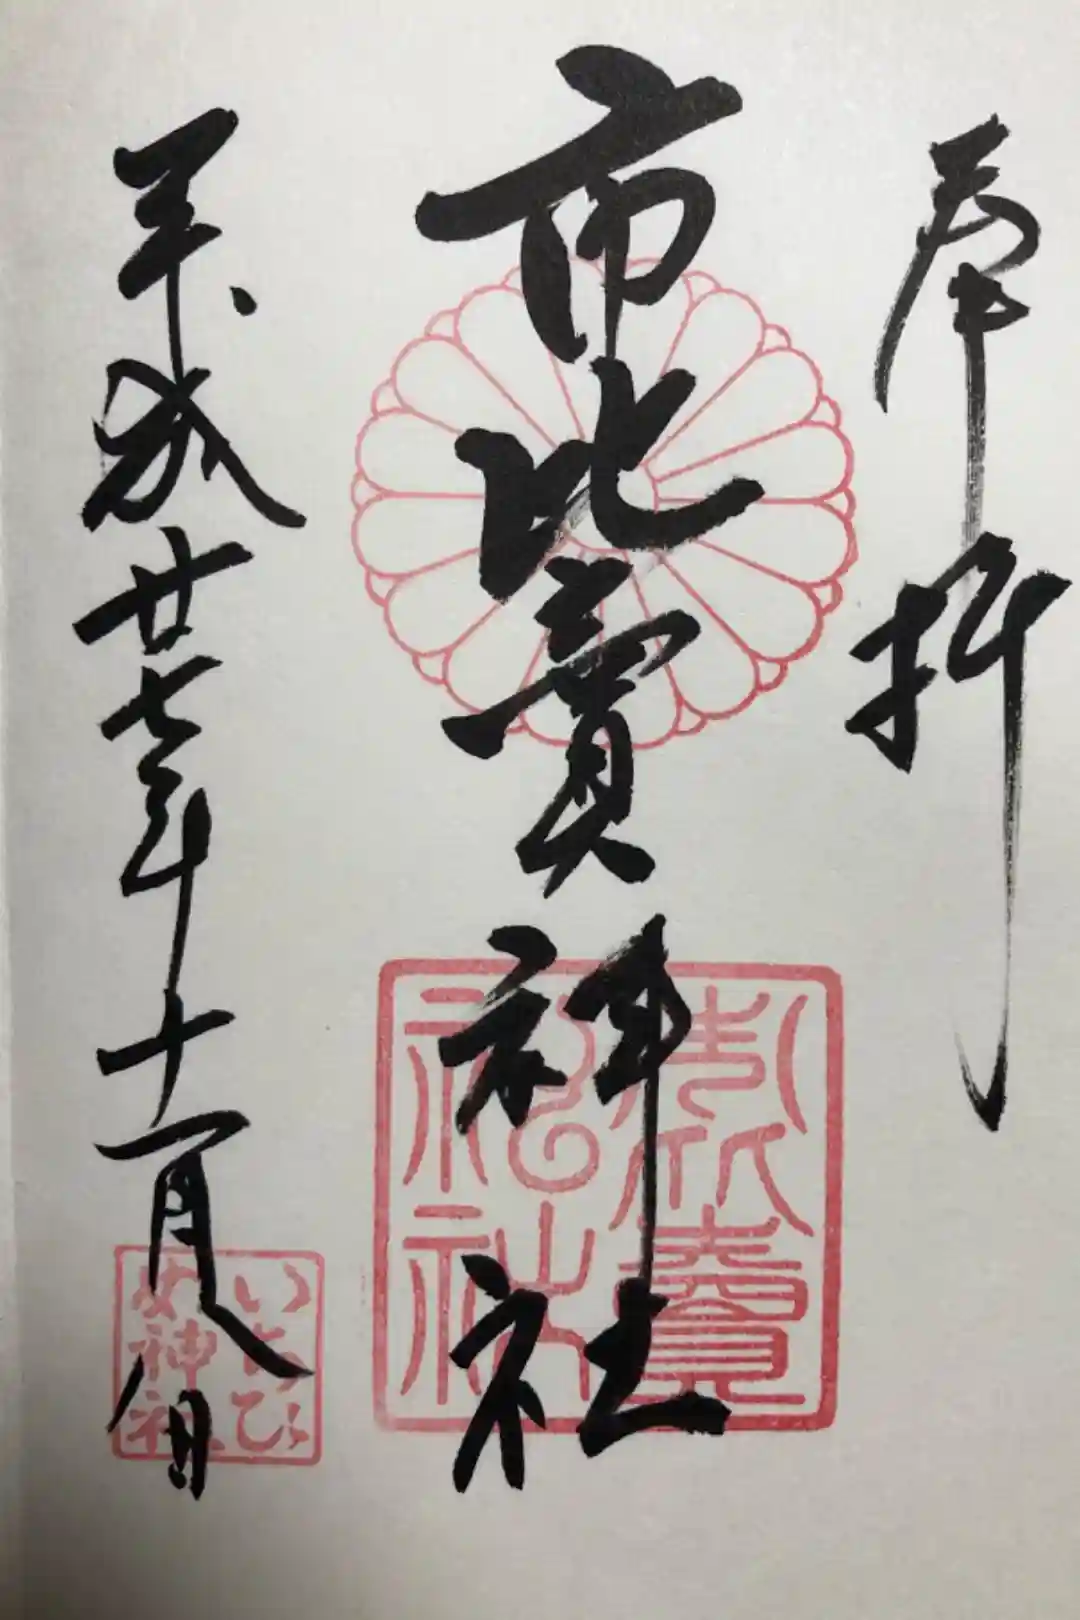 奉拝
市比賣神社
平成廿七年十一月八日
市比賣神社
いちひめ神社